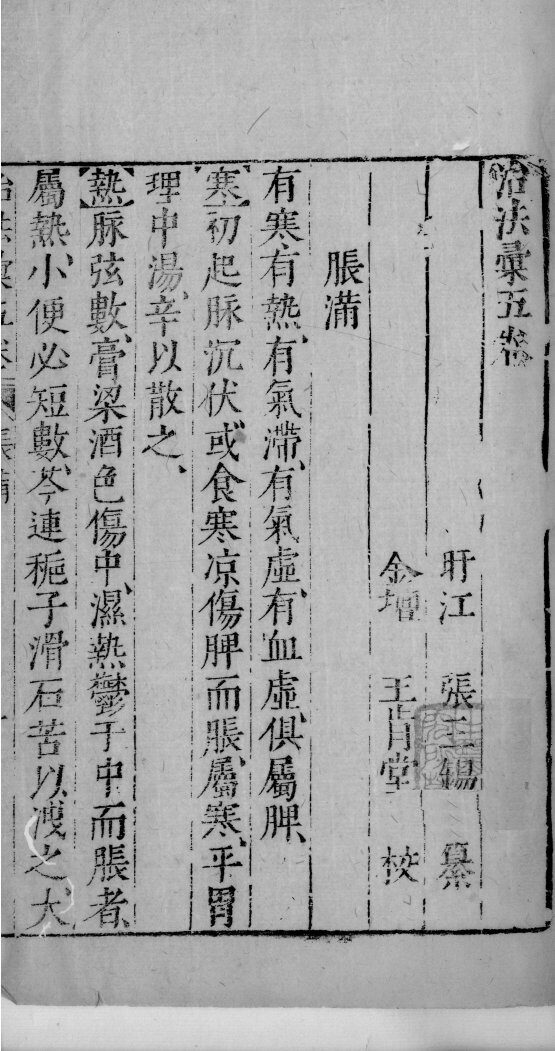 治法彙五卷
盱江 張三錫 纂
金壇 王肯堂 校
脹滿
有寒、有熱、有氣滯、有氣虛、有血虛、俱屬脾、
【寒】初起脉沉伏或食寒凉傷脾而脹、屬寒、平胃
理中湯、辛以散之、
【熱】脉弦數、膏梁酒色傷中、濕熱鬱于中而脹者、
屬熱、小便必短數、芩連梔子滑石苦以洩之、大